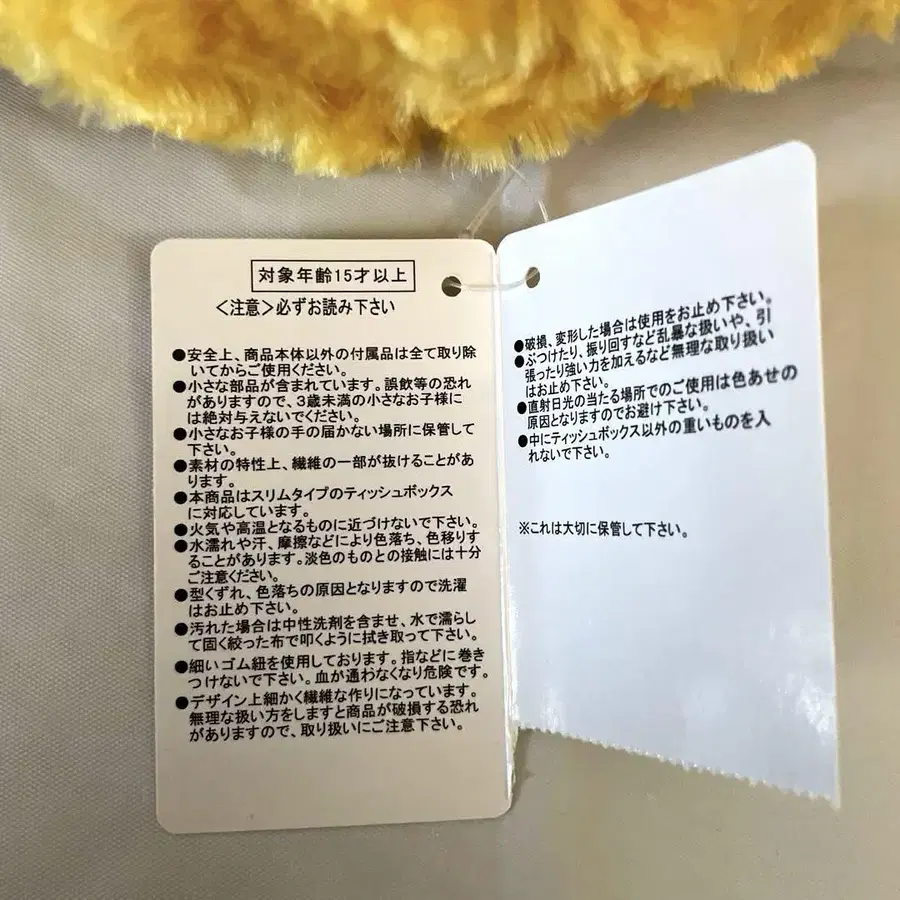 対象年齢15才以上
＜注意＞必ずお読み下さい
●安全上、商品本体以外の付属品は全て取り除
いてからご使用ください。
●小さな部品が含まれています。誤飲等の恐れ
がありますので、3歳未満の小さなお子様に
は絶対与えないでください。
●小さなお子様の手の届かない場所に保管して
下さい。
●素材の特性上、繊維の一部が抜けることがあ
ります。
●本商品はスリムタイプのティッシュボックス
に対応しています。
●火気や高温となるものに近づけないで下さい。
●水濡れや汗、摩擦などにより色落ち、色移りす
ることがあります。淡色のものとの接触には十分
ご注意ください。
●型くずれ、色落ちの原因となりますので洗濯
はお止め下さい。
●汚れた場合は中性洗剤を含ませ、水で濡らし
て固く絞った布で叩くように拭き取って下さい。
●細いゴム紐を使用しております。指などに巻き
つけないで下さい。血が通わなくなり危険です。
●デザイン上細かく繊維な作りになっています。
無理な扱い方をしますと商品が破損する恐れ
がありますので、取り扱いにご注意下さい。
●破損、変形した場合は使用をお止め下さい。
●ぶつけたり、振り回すなど乱暴な扱いや、引
張ったり強い力を加えるなど無理な取り扱い
はお止め下さい。
●直射日光の当たる場所でのご使用は色あせの
原因となりますのでお避け下さい。
●中にティッシュボックス以外の重いものを入
れないで下さい。
※これは大切に保管して下さい。